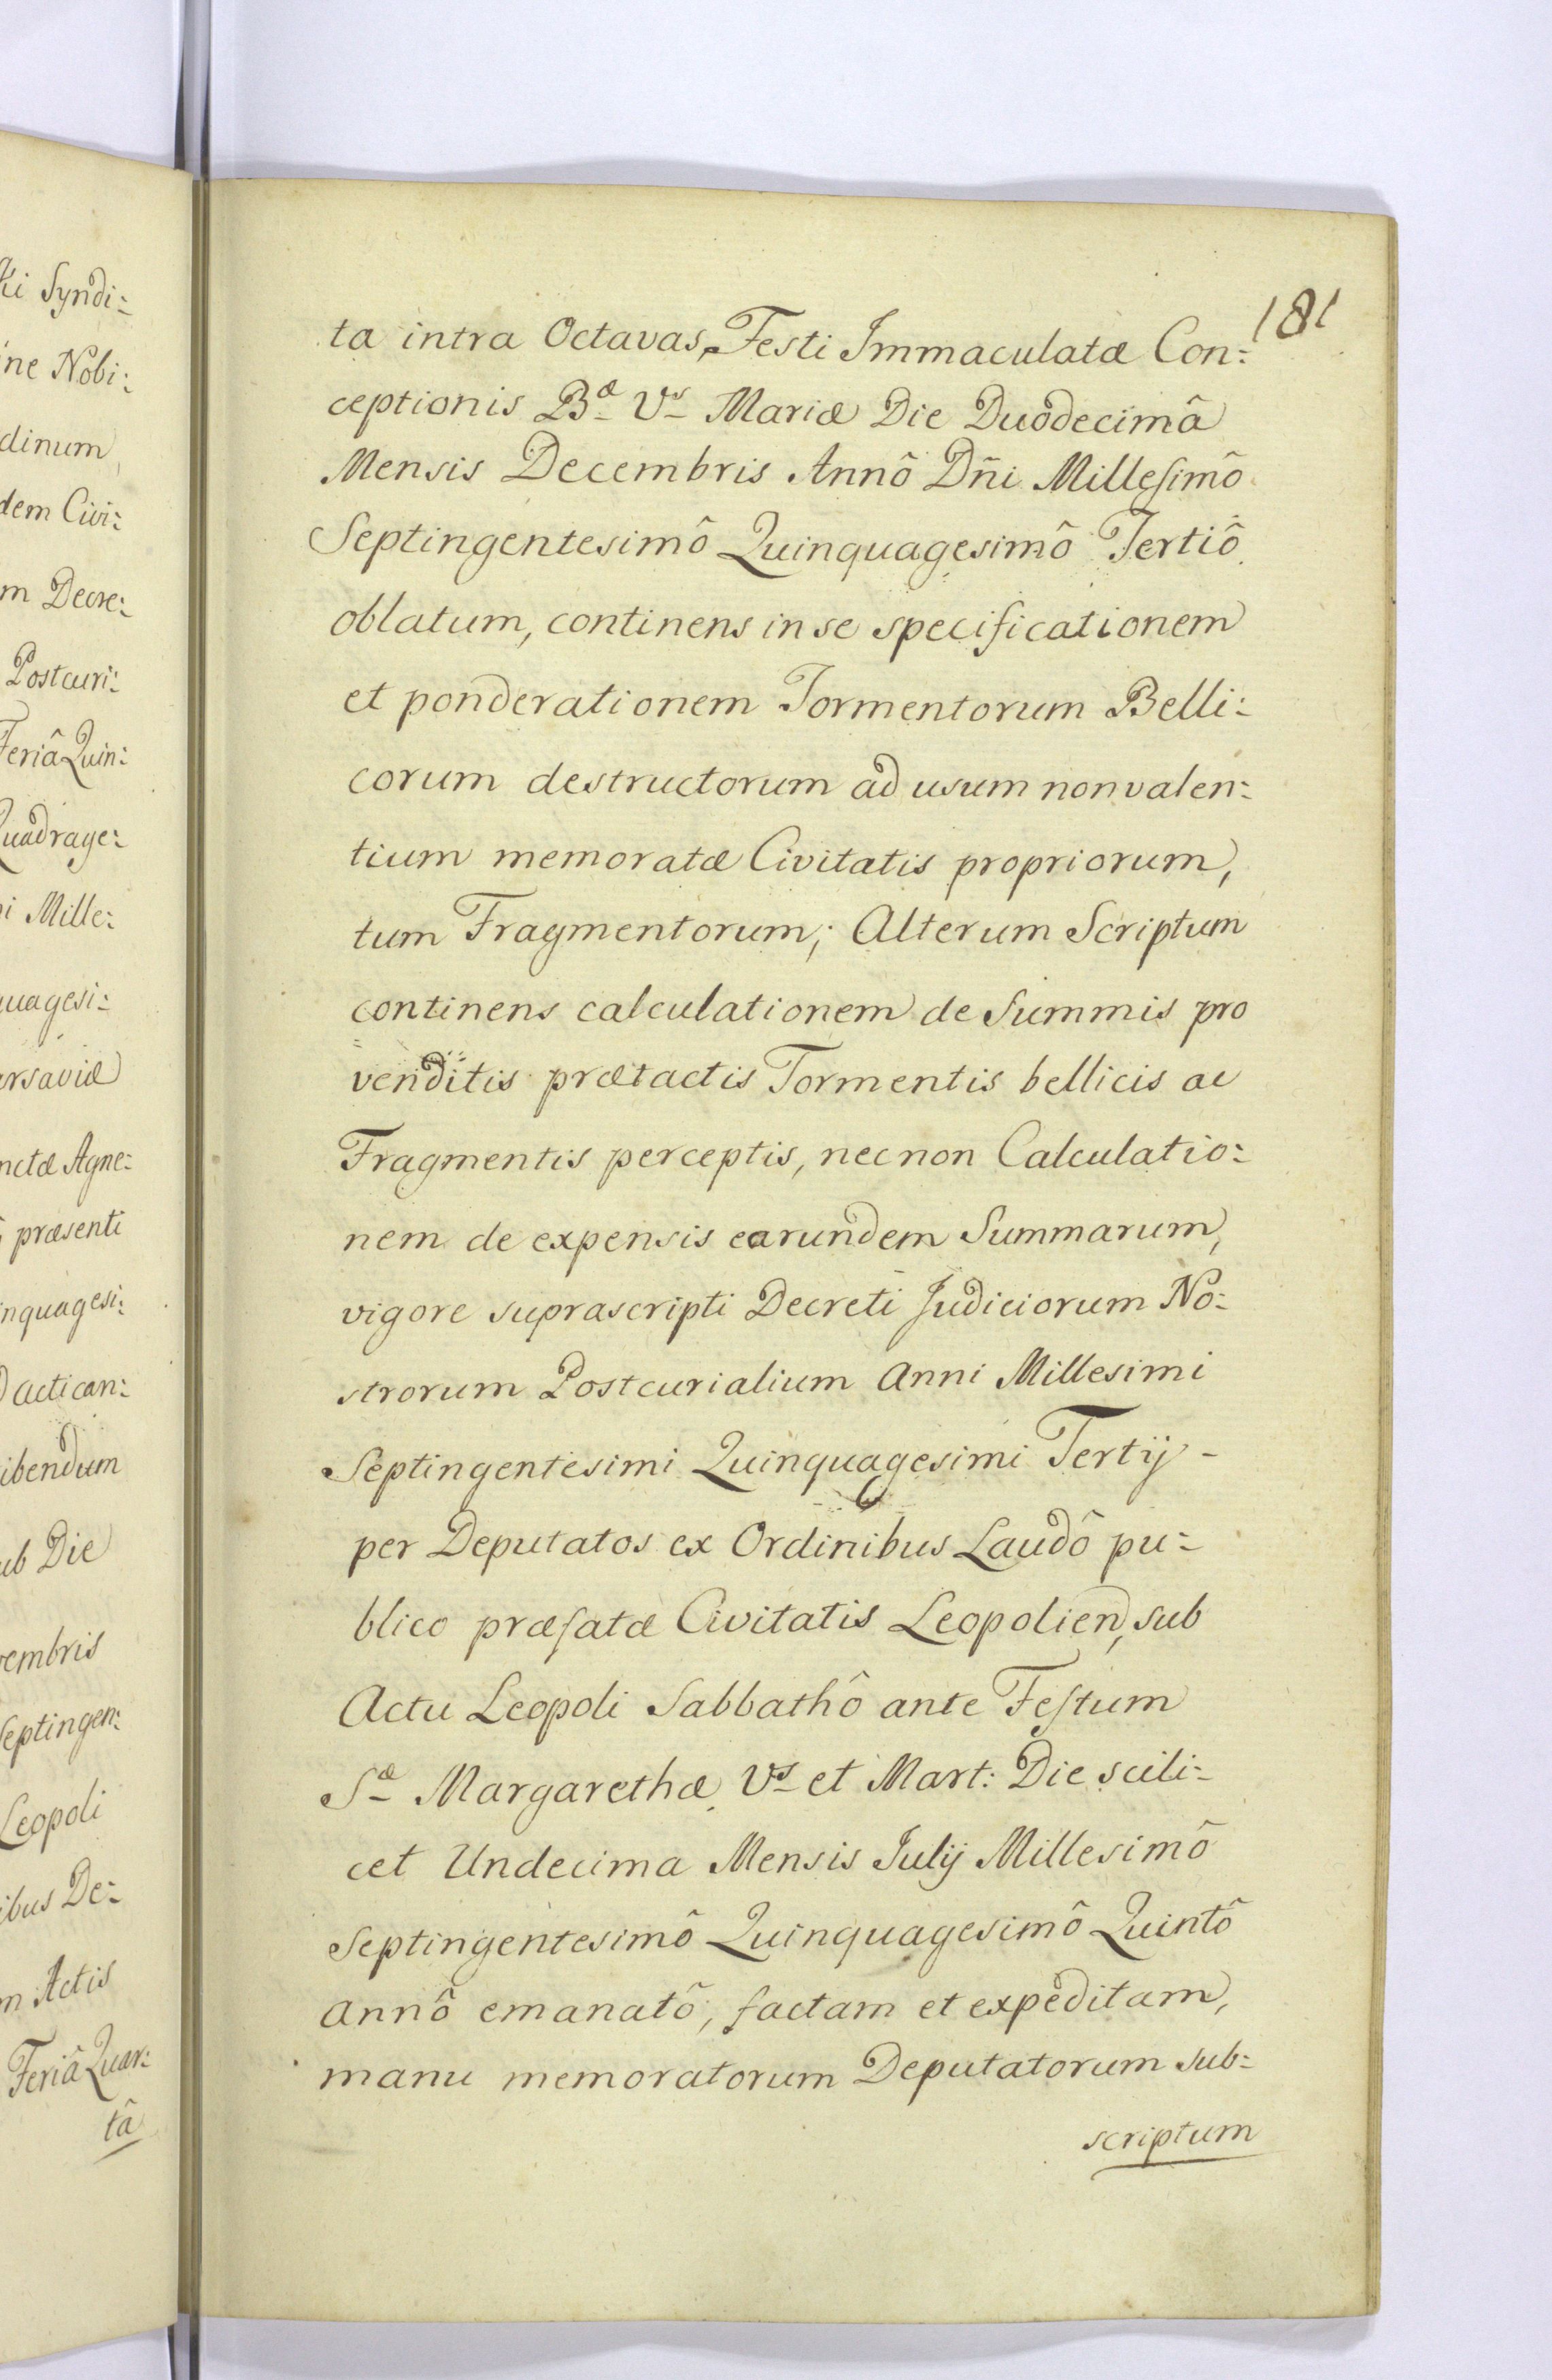 ki Syndi:
ine Nobi:
dinum
dem Civi:
m Decre:
Postcuri:
Feriâ Quin:
Quadrage:
i Mille:
uagesi:
arsaviæ
nctæ Agne:
præsenti
nquagesi:
actican:
ibendum
ub Die
vembris
Septingen:
Leopoli
ibus De:
m Actis
Feriâ Quar:
tâ
181
ta intra Octavas Festi Immaculatæ Con:
ceptionis Bæ Vs Mariæ Die Duodecimâ
Mensis Decembris Annô Dñi Millesimô
Septingentesimô Quinquagesimô Tertiô
oblatum, continens in se specificationem
et ponderationem Tormentorum Belli:
corum destructorum ad usum non valen:
tium memoratæ Civitatis propriorum,
tum Fragmentorum; Alterum Scriptum
continens calculationem de Summis pro
venditis prætactis Tormentis bellicis ac
Fragmentis perceptis, nec non Calculatio:
nem de expensis earundem Summarum,
vigore suprascripti Decreti Judiciorum No:
strorum Postcurialium Anni Millesimi
Septingentesimi Quinquagesimi Tertij -
per Deputatos ex Ordinibus Laudô pu:
blico præfatæ Civitatis Leopolien, sub
Actu Leopoli Sabbathô ante Festum
Sæ Margarethæ Vs et Mart: Die scili:
cet Undecima Mensis Julij Millesimô
Septingentesimô Quinquagesimô Quintô
Annô emanatô, factam et expeditam,
manu memoratorum Deputatorum sub:
scriptum